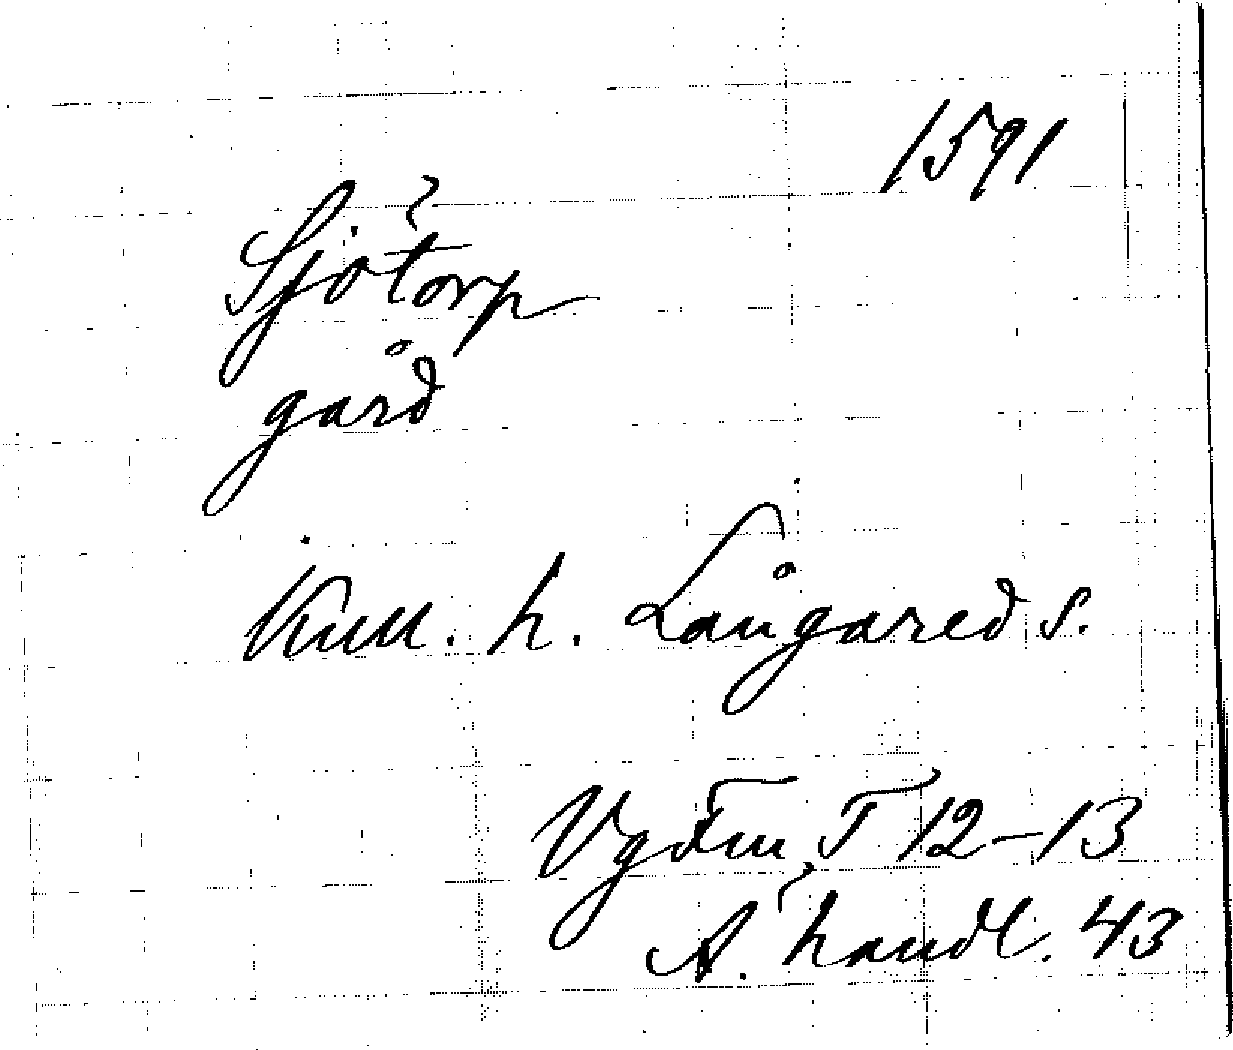 1591
Sjötorp
gård
Kull. h. Långared s.
Vg Fm, T 12-13
A. handl. 43